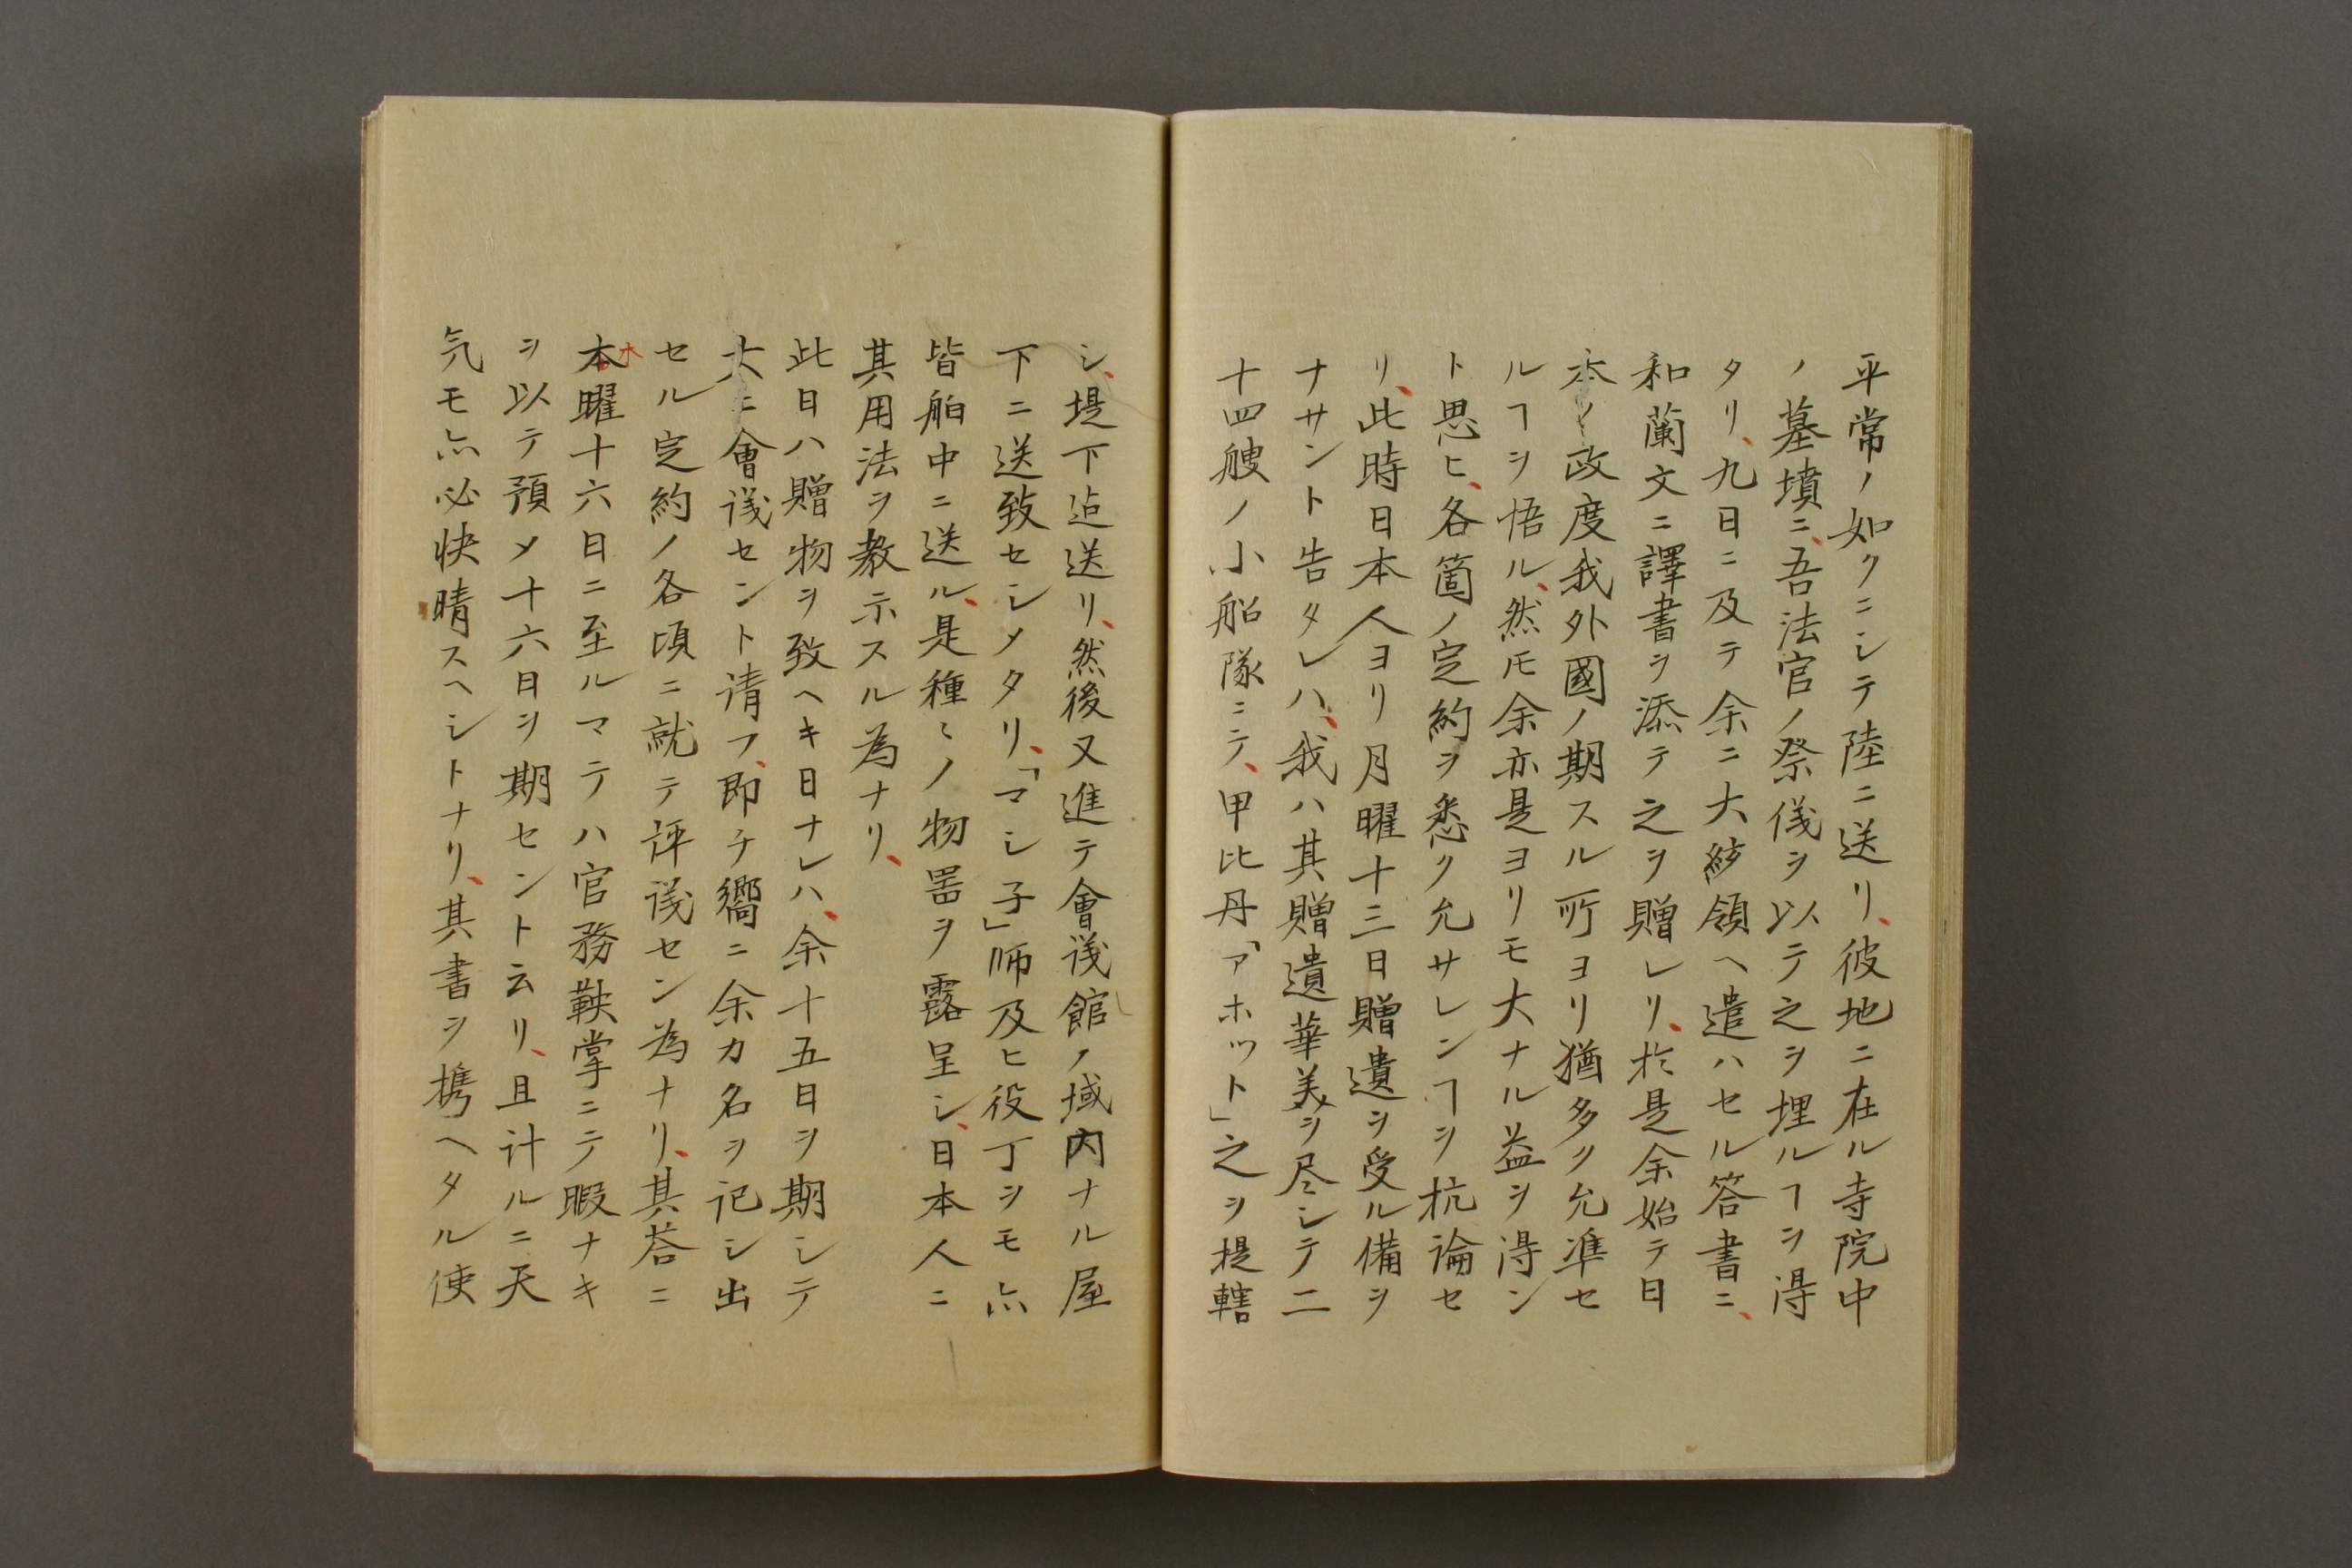 平常ノ如クニシテ陸ニ送リ、彼地ニ在ル寺院中
ノ墓墳ニ、吾法官ノ祭儀ヲ以テ之ヲ埋ルヿヲ得
タリ、九日ニ及テ余ニ大紗領ヘ遣ハセル答書ニ、
和蘭文ニ譯書ヲ添テ之ヲ贈レリ、於是余始テ日
本ノ政度我外國ノ期スル所ヨリ猶多ク允準セ
ルヿヲ悟ル、然モ余亦是ヨリモ大ナル益ヲ得ン
ト思ヒ、各箇ノ定約ヲ悉ク允サレンヿヲ抗論セ
リ、此時日本人ヨリ月曜十三日贈遺ヲ受ル備ヲ
ナサント告タレハ、我ハ其贈遺華美ヲ尽シテ二
十四艘ノ小船隊ニテ、甲比丹「アホット」之ヲ提轄
シ、堤下迠送リ、然後又進テ會議館ノ域内ナル屋
下ニ送致セシメタリ、「マシ子」师及ヒ役丁ヲモ亦
皆舶中ニ送ル、是種〻ノ物噐ヲ露呈シ、日本人ニ
其用法ヲ教示スル為ナリ、
此日ハ贈物ヲ致ヘキ日ナレハ、余十五日ヲ期シテ
大ニ會議セント请フ、即チ嚮ニ余カ名ヲ記シ出
セル定約ノ各項ニ就テ评議セン為ナリ、其荅ニ
本木曜十六日ニ至ルマテハ官務鞅掌ニテ暇ナキ
ヲ以テ預メ十六日ヲ期セント云リ、且计ルニ天
気モ亦必快晴スヘシトナリ、其書ヲ携ヘタル使